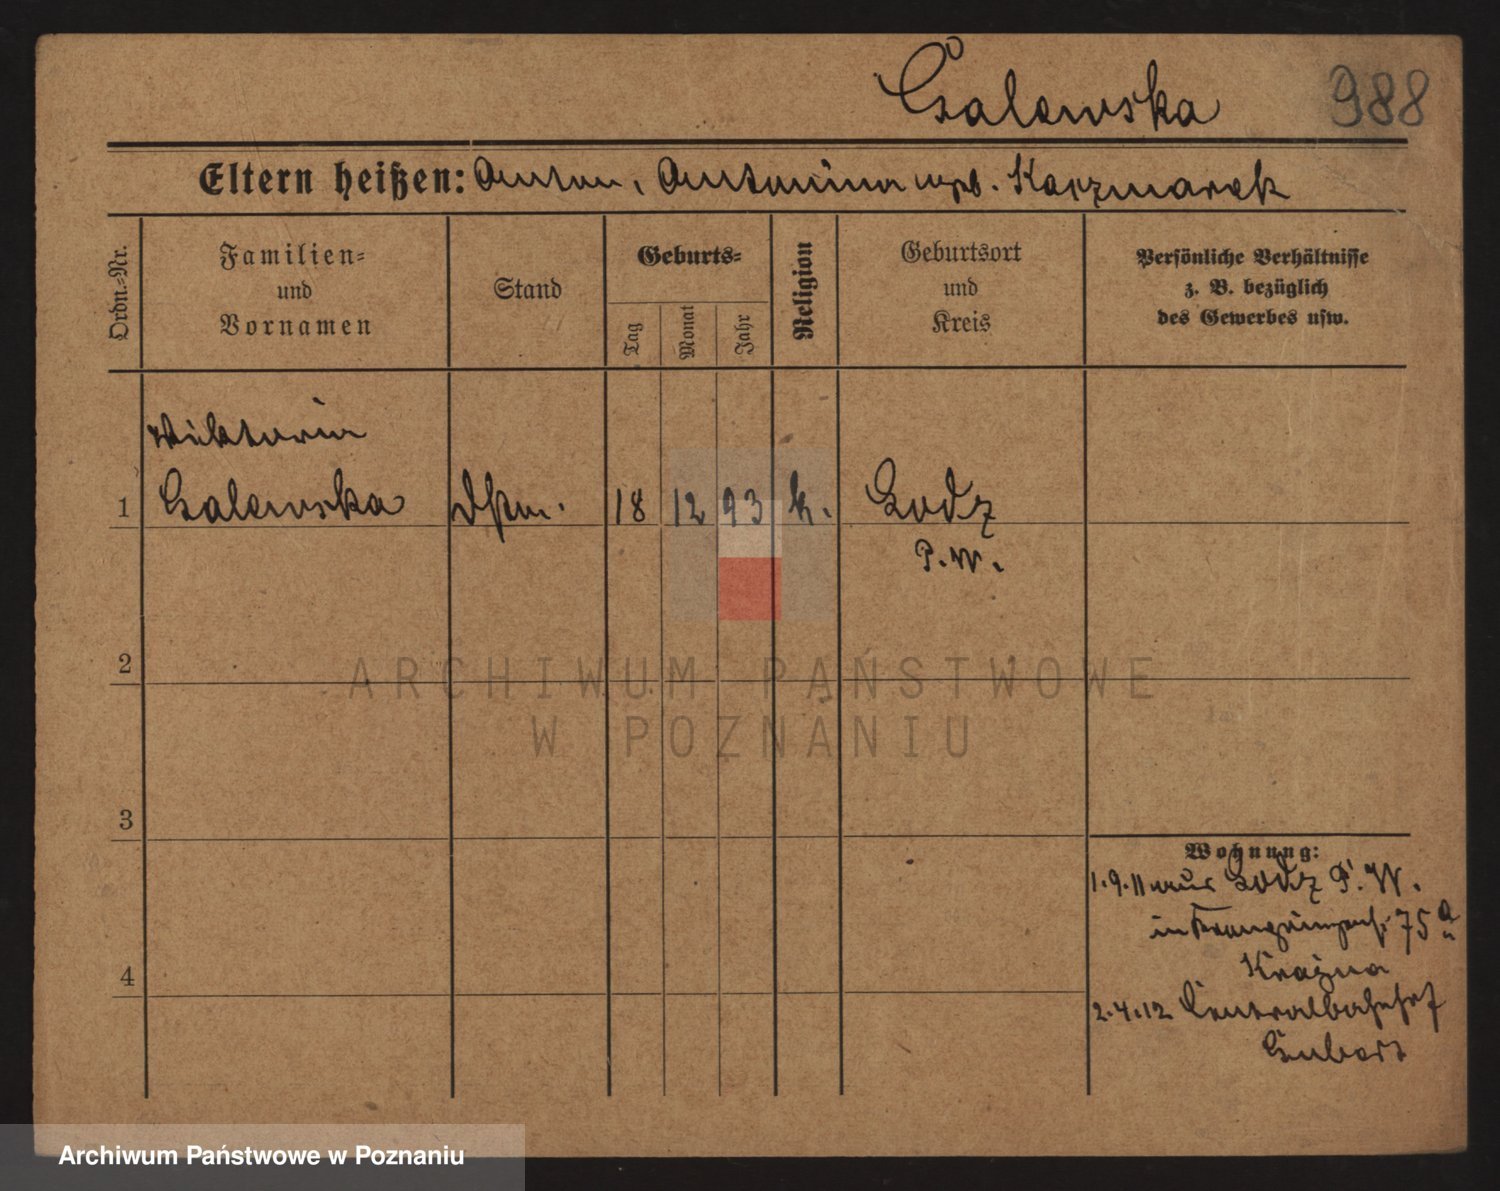 Galewska 988
Eltern heißen: Anton, Antonina geb. Kaczmarek
Ordn.-Nr.
Familien-
und
Vornamen
Stand
Geburts-
Tag
Monat
Jahr
Religion
Geburtsort
und
Kreis
Persönliche Verhältnisse
z. B. bezüglich
des Gewerbes usw.
Wiktoria
1 Galewska 18 12 93 k. Lodz
P. W.
2
3
4
Wohnung:
1.9.11 aus Lodz P. W.
in 75
Krajna
2.4.12 Centralbahnhof
ARCHIWUM PAŃSTWOWE
W POZNANIU
Archiwum Państwowe w Poznaniu